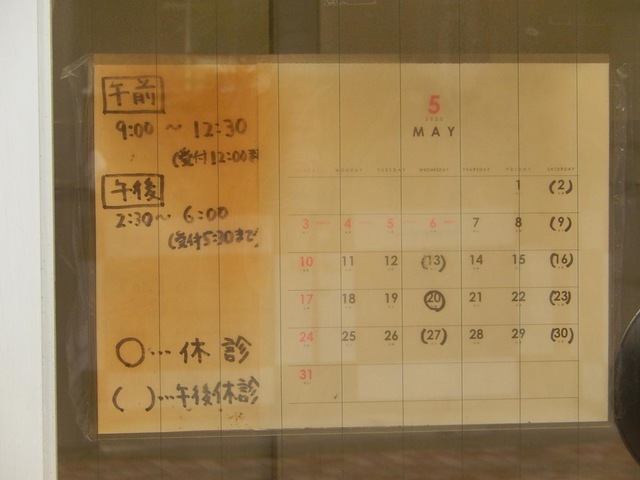 午前
9:00 〜 12:30
(受付12:00まで
午後
2:30〜 6:00
(受付5:30まで)
○…休診
( )…午後休診
5
MAY
MONDAY TUESDAY WEDNESDAY THURSDAY FRIDAY SATURDAY
1 (2)
3 4 5 6 7 8 (9)
10 11 12 (13) 14 15 (16)
17 18 19 20 21 22 (23)
24 25 26 (27) 28 29 (30)
31